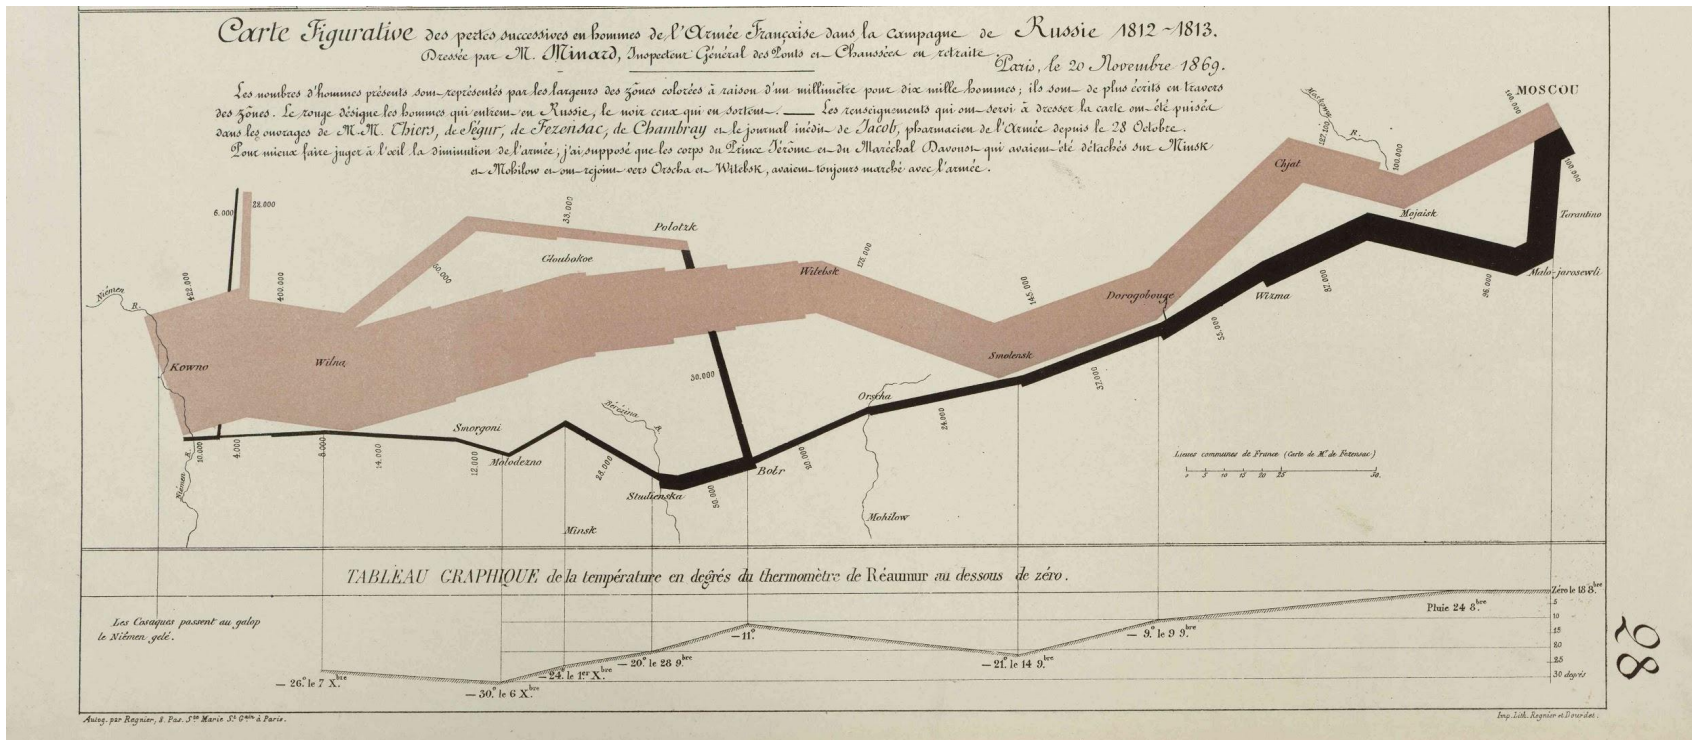 Carte Figurative des pertes successives en hommes de l'Armée Française dans la campagne de Russie 1812~1813.
Dressée par M. Minard, Inspecteur Général des Ponts et Chaussées en retraite.
Paris, le 20 Novembre 1869.
Les nombres d'hommes présents sont représentés par les largeurs des zônes colorées à raison d'un millimètre pour dix mille hommes; ils sont de plus écrits en travers
des zônes. Le rouge désigne les hommes qui entrent en Russie, le noir ceux qui en sortent. — Les renseignements qui ont servi à dresser la carte ont été puisés
dans les ouvrages de M.M. Thiers, de Ségur, de Fezensac, de Chambray et le journal inédit de Jacob, pharmacien de l'Armée depuis le 28 Octobre.
Pour mieux faire juger à l'œil la diminution de l'armée, j'ai supposé que les corps du Prince Jérôme et du Maréchal Davoust qui avaient été détachés sur Minsk
et Mohilow et ont rejoint vers Orscha et Witebsk, avaient toujours marché avec l'armée.
MOSCOU
100.000
Moskowa R.
127.100
100.000
100.000
Chjat
Mojaisk
Tarantino
Malo-jarosewli
6.000
22.000
33.000
Polotzk
Gloubokoe
60.000
175.000
Witebsk
422.000
400.000
Niémen R.
145.000
Dorogobouge
Wizma
87.000
96.000
55.000
Kowno
Wilna
Smolensk
30.000
37.000
Orscha
24.000
Bérézina R.
Smorgoni
Molodezno
10.000
4.000
8.000
14.000
12.000
28.000
Studienska
50.000
Bobr
20.000
Niémen R.
Minsk
Mohilow
Lieues communes de France (Carte de M. de Fezensac)
5 10 15 20 25 50.
TABLEAU GRAPHIQUE de la température en degrés du thermomètre de Réaumur au dessous de zéro.
Les Cosaques passent au galop
le Niémen gelé.
Zéro le 18 8.bre
5
10
15
20
25
30 degrés
Pluie 24 8.bre
— 9.° le 9 9.bre
— 21.° le 14 9.bre
— 11.°
— 20.° le 28 9.bre
— 24.° le 1.er X.bre
— 30.° le 6 X.bre
— 26.° le 7 X.bre
28
Autog. par Regnier, 8. Pas. S.te Marie S.t G.ain à Paris.
Imp. Lith. Regnier et Dourdet.